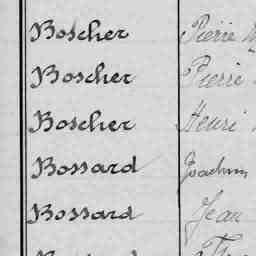 Boscher Pierre
Boscher Pierre
Boscher Henri
Bossard Joachim
Bossard Jean